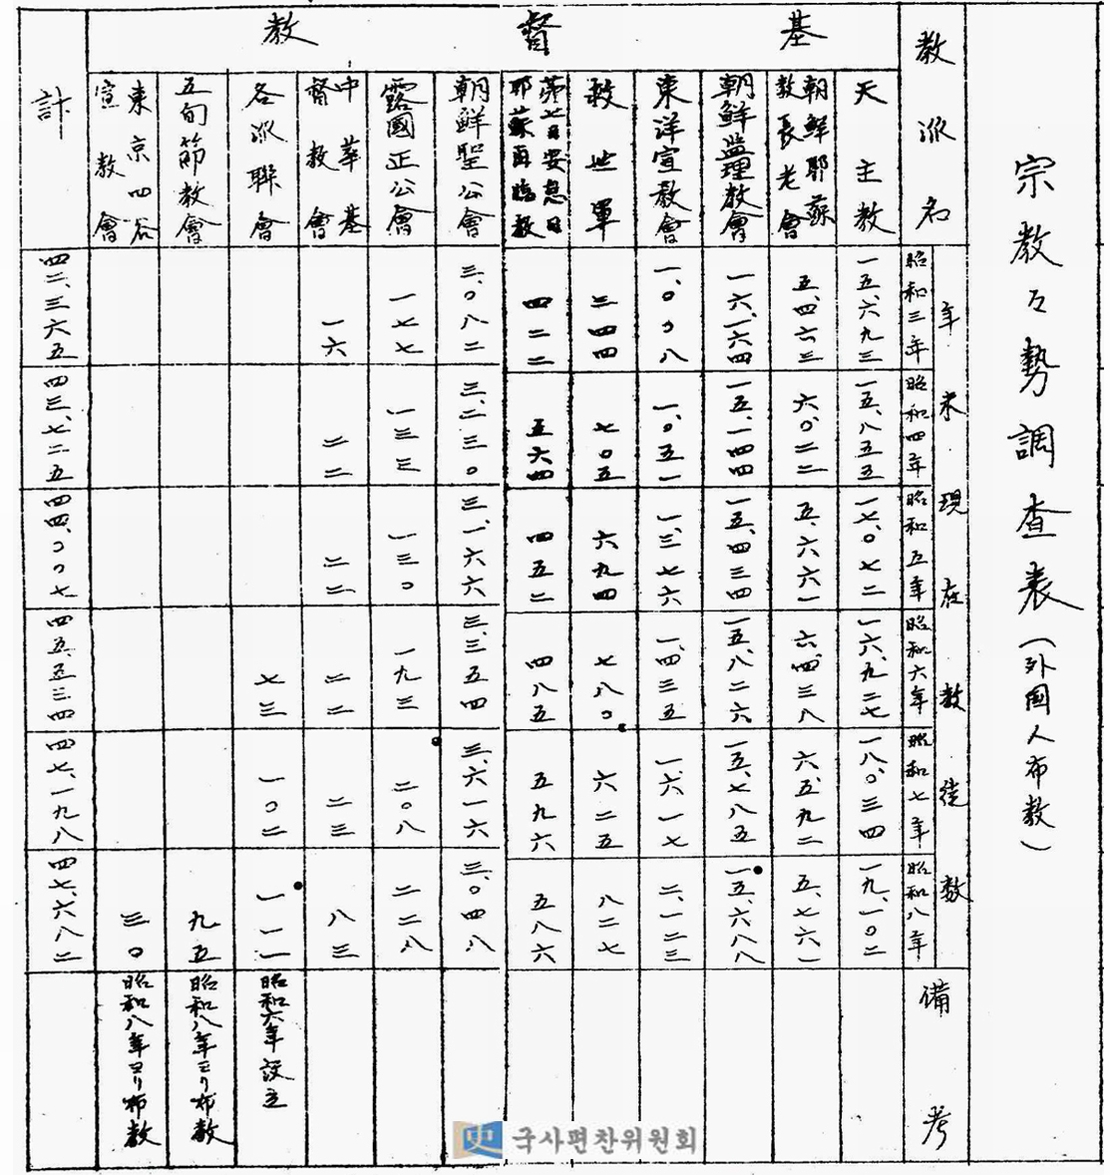 宗教々勢調査表(外國人布教)
教派名
年末現在教徒数
昭和三年
昭和四年
昭和五年
昭和六年
昭和七年
昭和八年
備考
基督教
天主教
一五、六九三
一五、八五五
一七、〇七二
一六、九二七
一八、〇三四
一九、一〇二
朝鮮耶蘇
教長老會
五、四六三
六、〇二二
五、六六一
六、四三八
六、五九二
五、七六一
朝鮮監理教會
一六、一六四
一五、一四四
一五、四三四
一五、八二六
一五、七八五
一五、六八八
東洋宣教會
一、〇〇八
一、〇五一
一、三七六
一、四三五
一、六一七
二、一二三
救世軍
三四四
七〇五
六九四
七八〇
六二五
八二七
第七日安息日
耶蘇再臨教
四二二
五六四
四五二
四八五
五九六
五八六
朝鮮聖公會
三、〇八二
三、二三〇
三、一六六
三、三五四
三、六一六
三、〇四八
露國正公會
一七七
一三三
一三〇
一九三
二〇八
二二八
中華基
督教會
一六
二二
二二
二二
二三
八三
各派聯會
七三
一〇二
一一一
昭和六年設立
五旬節教會
九五
昭和八年ヨリ布教
東京四谷
宣教會
三〇
昭和八年ヨリ布教
計
四二、三六五
四三、七二五
四四、〇〇七
四五、五三四
四七、一九八
四七、六八二
史 국사편찬위원회